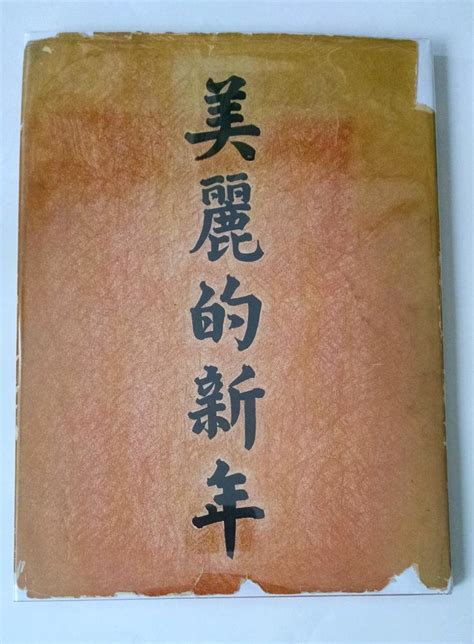 美麗的新年